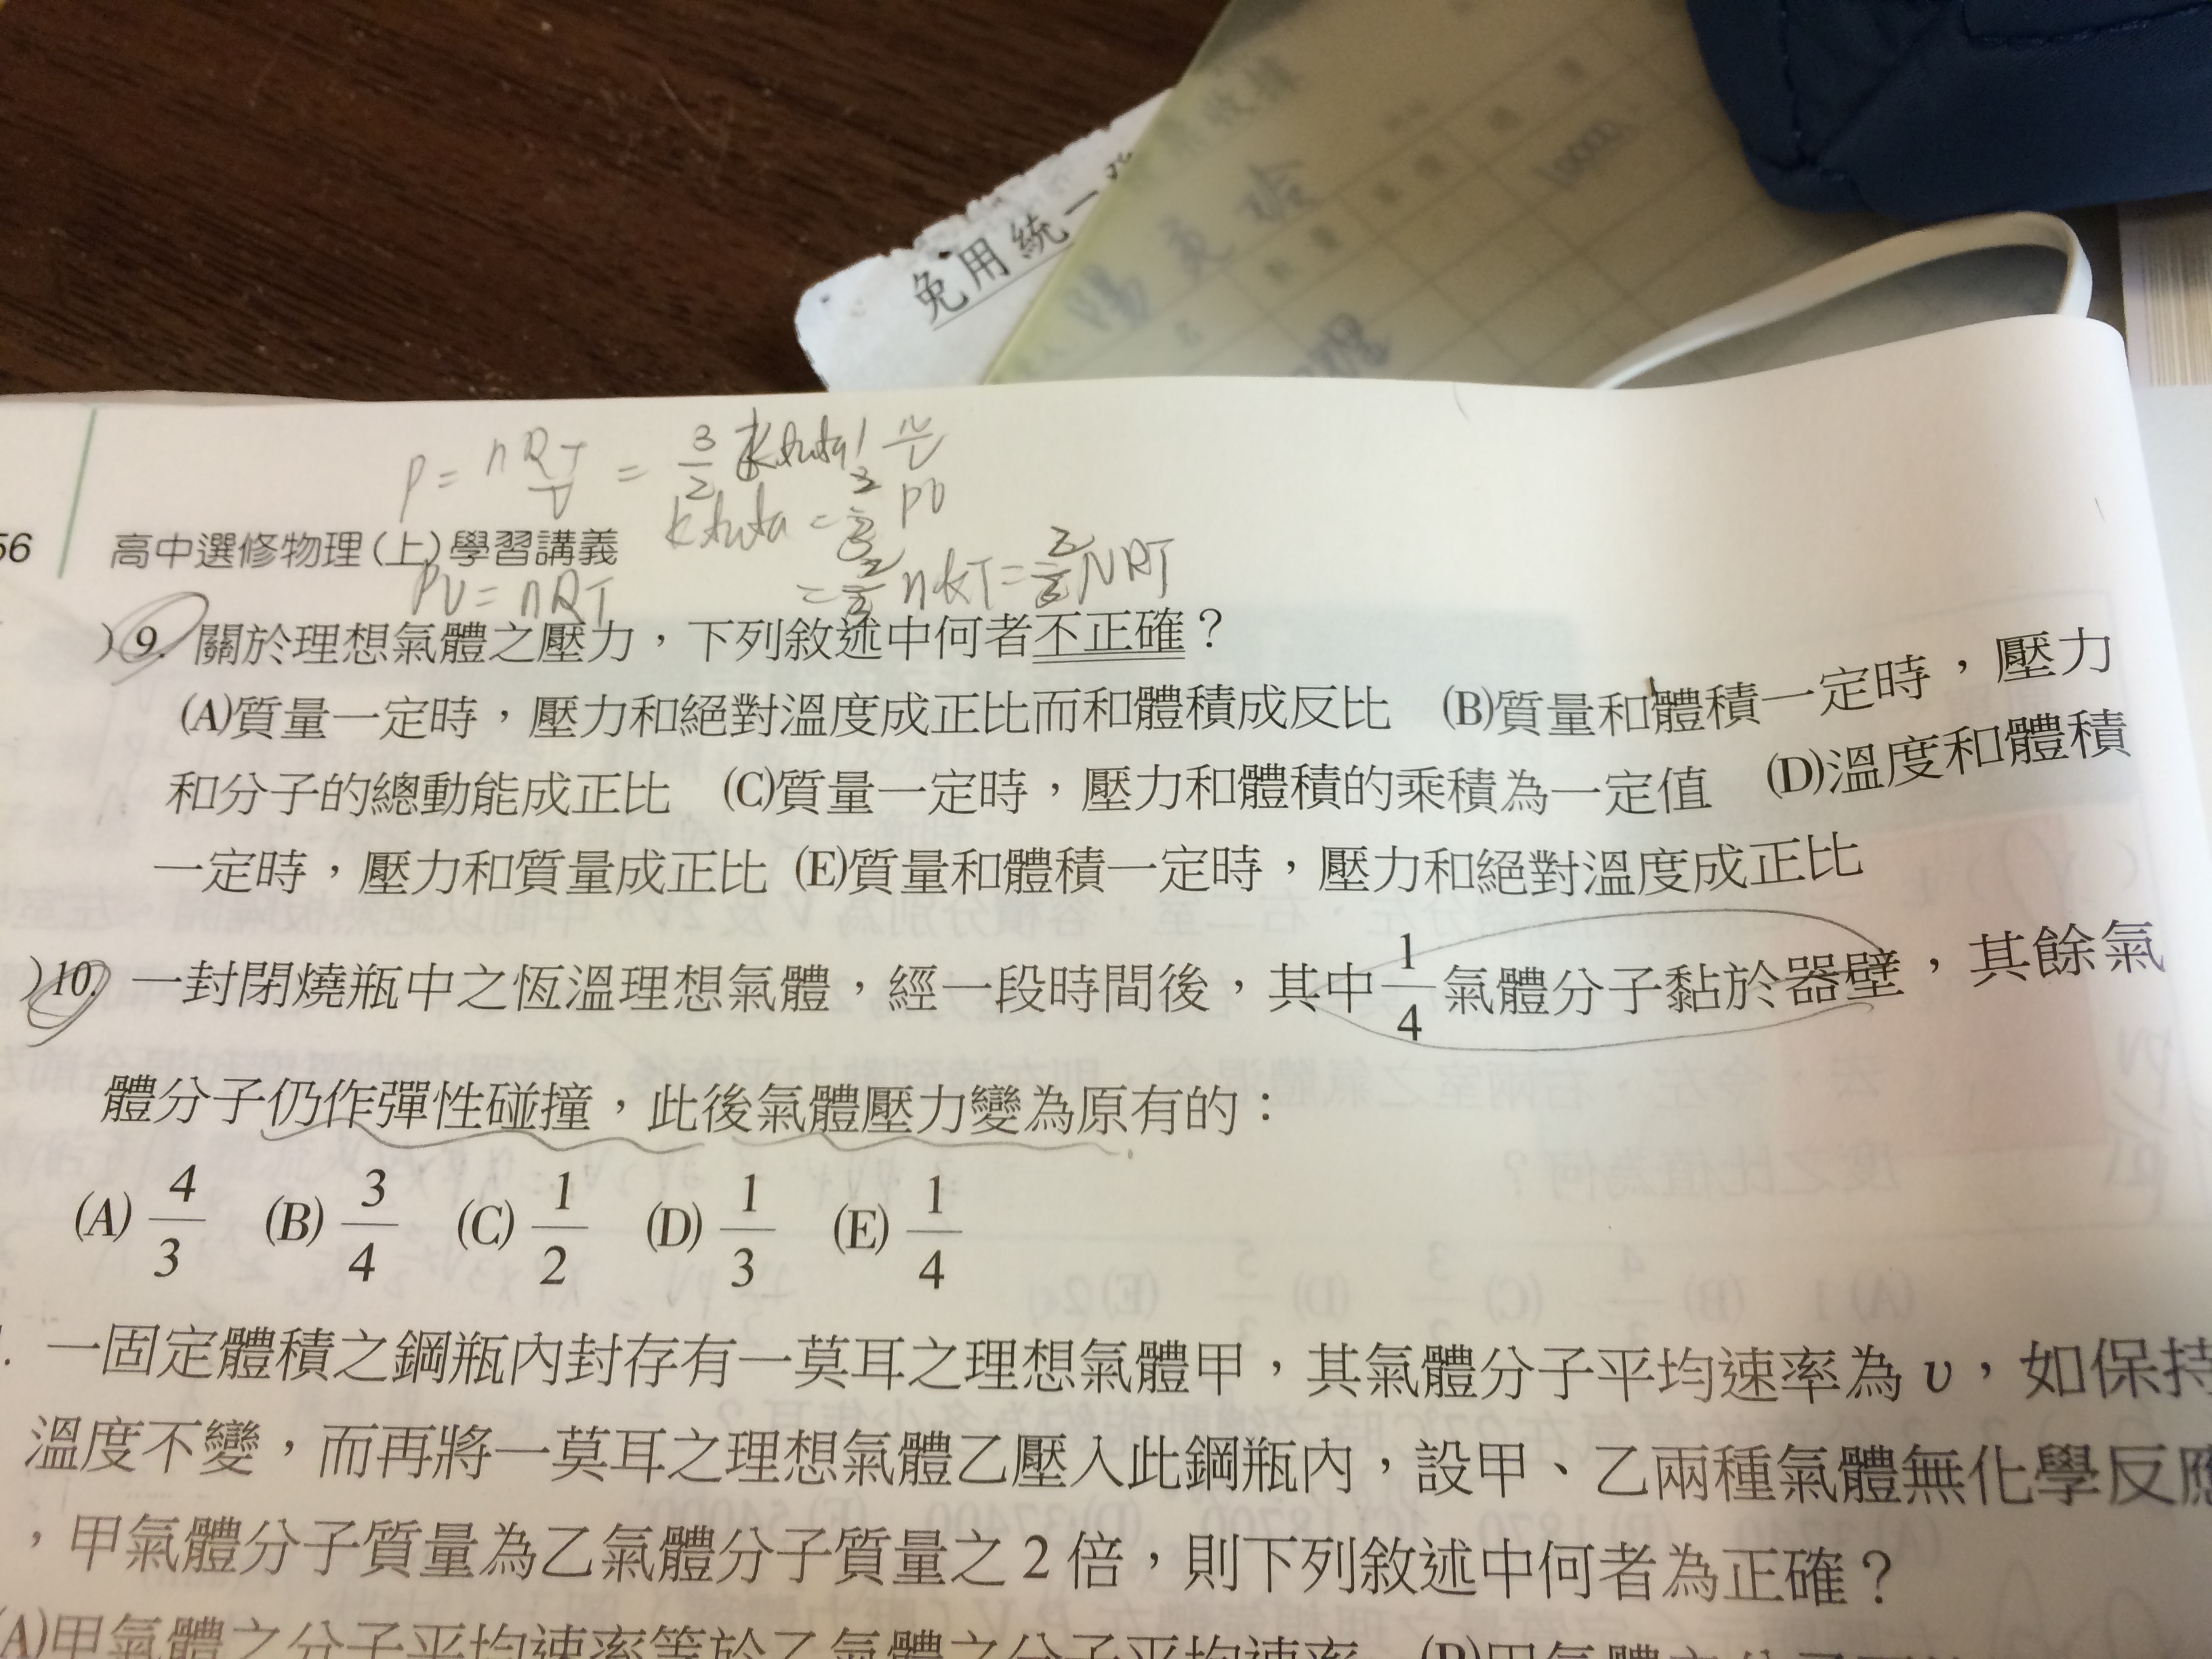 免用統一
P = nRT/V = 3/2
PV = nRT
56 高中選修物理(上)學習講義
)9. 關於理想氣體之壓力,下列敘述中何者不正確?
(A)質量一定時,壓力和絕對溫度成正比而和體積成反比 (B)質量和體積一定時,壓力
和分子的總動能成正比 (C)質量一定時,壓力和體積的乘積為一定值 (D)溫度和體積
一定時,壓力和質量成正比 (E)質量和體積一定時,壓力和絕對溫度成正比
)10. 一封閉燒瓶中之恆溫理想氣體,經一段時間後,其中1/4氣體分子黏於器壁,其餘氣
體分子仍作彈性碰撞,此後氣體壓力變為原有的:
(A) 4/3 (B) 3/4 (C) 1/2 (D) 1/3 (E) 1/4
. 一固定體積之鋼瓶內封存有一莫耳之理想氣體甲,其氣體分子平均速率為 υ,如保持
溫度不變,而再將一莫耳之理想氣體乙壓入此鋼瓶內,設甲、乙兩種氣體無化學反應
,甲氣體分子質量為乙氣體分子質量之 2 倍,則下列敘述中何者為正確?
(A)甲氣體之分子平均速率等於乙氣體之分子平均速率 (B)甲氣體